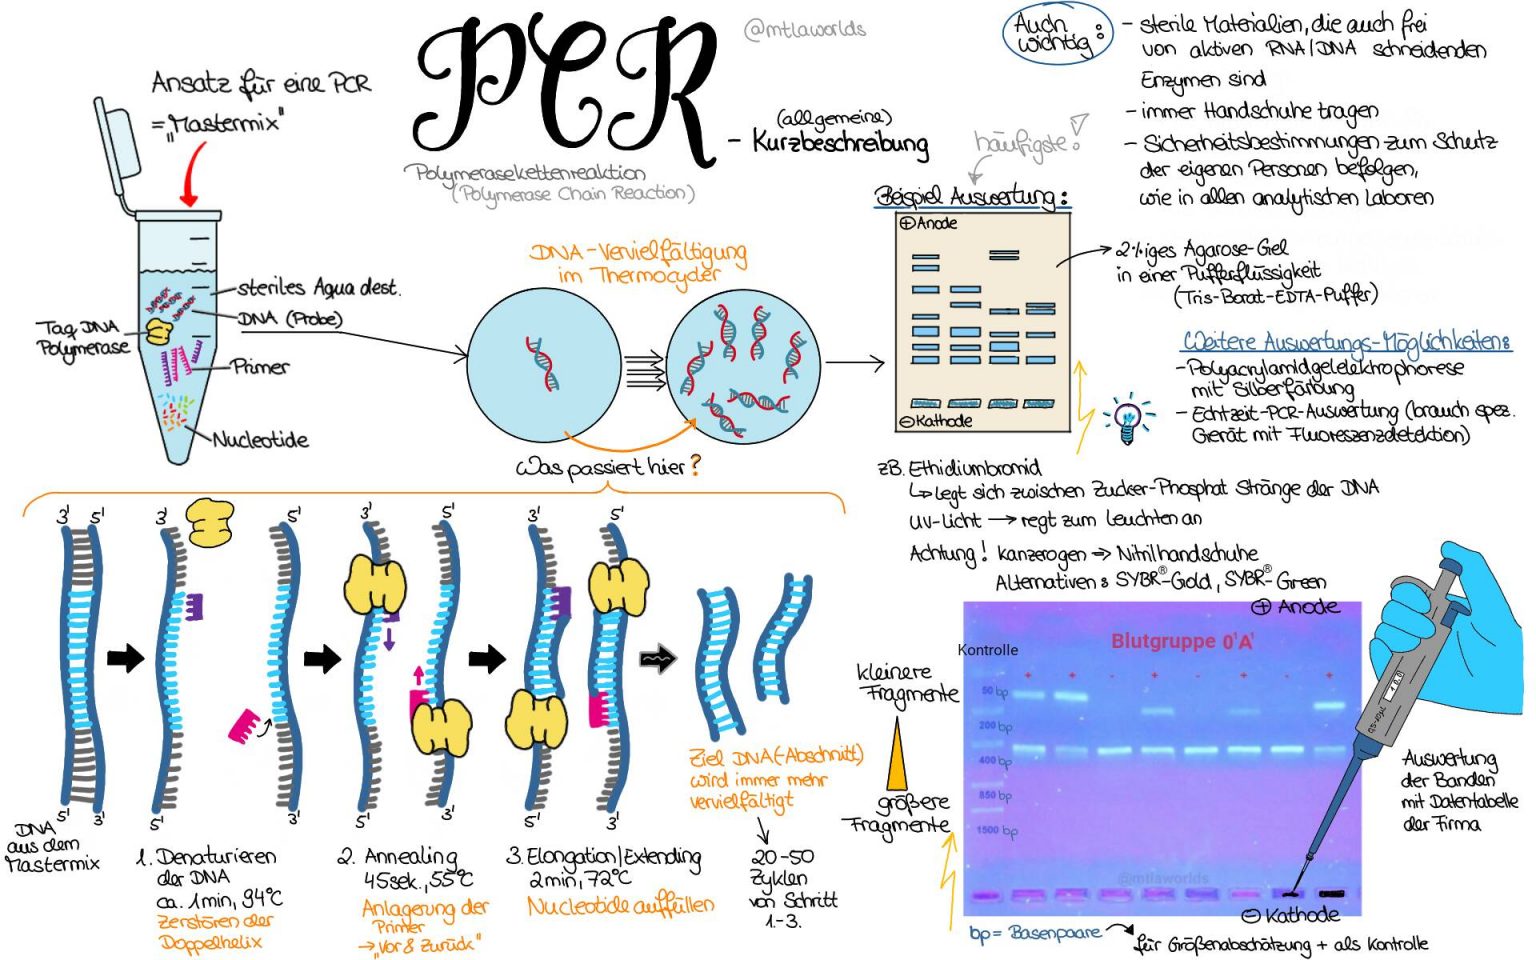 PCR
@mtlaworlds
- (allgemeine)
Kurzbeschreibung
Polymerasekettenreaktion
(Polymerase Chain Reaction)
Ansatz für eine PCR
= „Mastermix"
steriles Aqua dest.
DNA (Probe)
Taq DNA
Polymerase
Primer
Nucleotide
DNA-Vervielfältigung
im Thermocycler
Was passiert hier?
häufigste!
Beispiel Auswertung:
⊕ Anode
⊖ Kathode
Auch
wichtig:
- sterile Materialien, die auch frei
von aktiven RNA/DNA schneidenden
Enzymen sind
- immer Handschuhe tragen
- Sicherheitsbestimmungen zum Schutz
der eigenen Personen befolgen,
wie in allen analytischen Laboren
2%iges Agarose-Gel
in einer Pufferflüssigkeit
(Tris-Borat-EDTA-Puffer)
Weitere Auswertungs-Möglichkeiten:
- Polyacrylamidgelelektrophorese
mit Silberfärbung
- Echtzeit-PCR-Auswertung (brauch spez.
Gerät mit Fluoreszenzdetektion)
zB. Ethidiumbromid
↳ legt sich zwischen Zucker-Phosphat Stränge der DNA
UV-Licht → regt zum Leuchten an
Achtung! Kanzerogen → Nitrilhandschuhe
Alternativen: SYBR®-Gold, SYBR®-Green
3' 5'
3' 5'
3' 5'
3' 5'
5' 3'
5' 3'
5' 3'
5' 3'
DNA
aus dem
Mastermix
1. Denaturieren
der DNA
ca. 1min, 94°C
Zerstören der
Doppelhelix
2. Annealing
45sek., 55°C
Anlagerung der
Primer
→ „Vor & Zurück"
3. Elongation/Extending
2min, 72°C
Nucleotide auffüllen
Ziel DNA(-Abschnitt)
wird immer mehr
vervielfältigt
20-50
Zyklen
von Schritt
1.-3.
kleinere
Fragmente
größere
Fragmente
⊕ Anode
Blutgruppe 0¹A¹
Kontrolle
+ + - + - + - +
50 bp
200 bp
400 bp
850 bp
1500 bp
@mtlaworlds
⊖ Kathode
bp = Basenpaare
für Größenabschätzung + als Kontrolle
Auswertung
der Banden
mit Datentabelle
der Firma